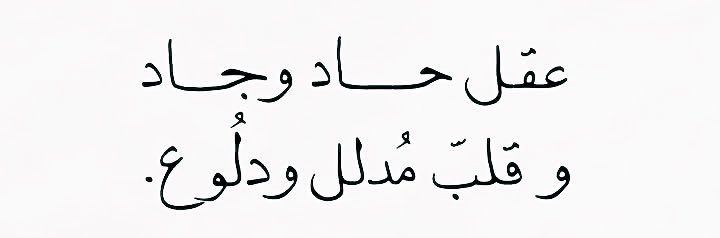 عقل حاد وجاد
و قلبّ مُدلل ودلُوع.